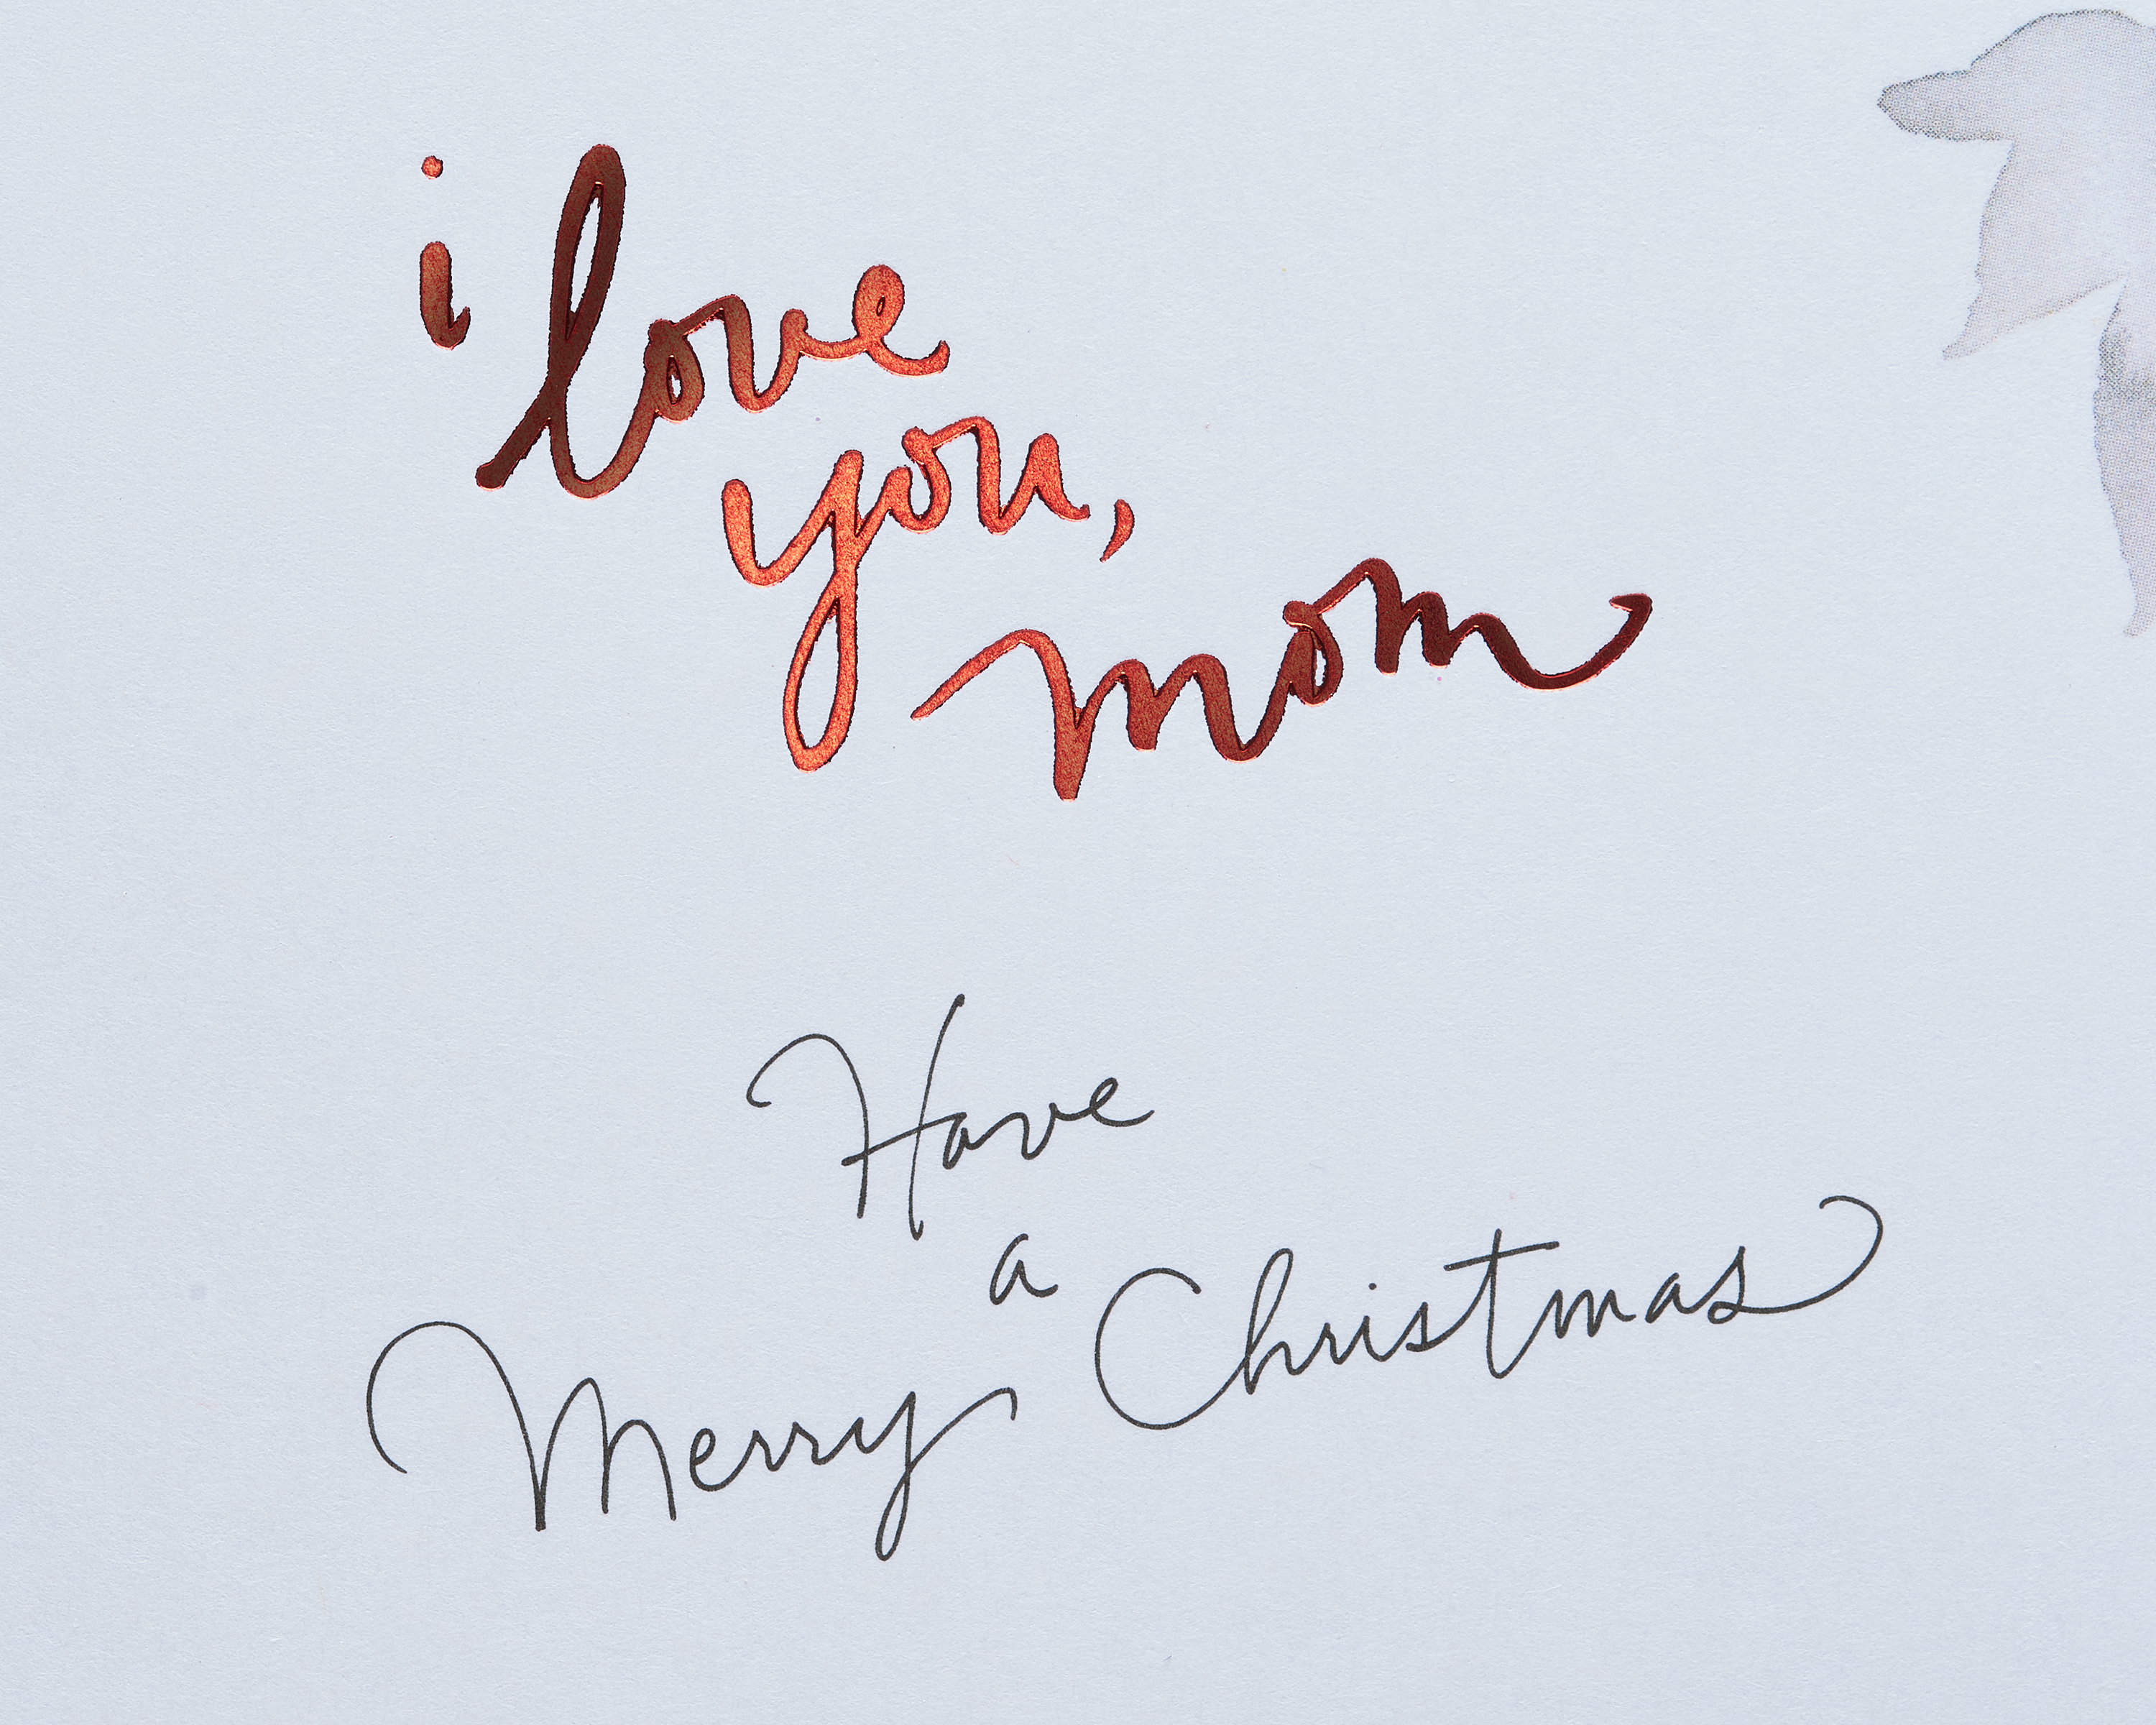 i love
you,
mom
Have
a
Merry Christmas